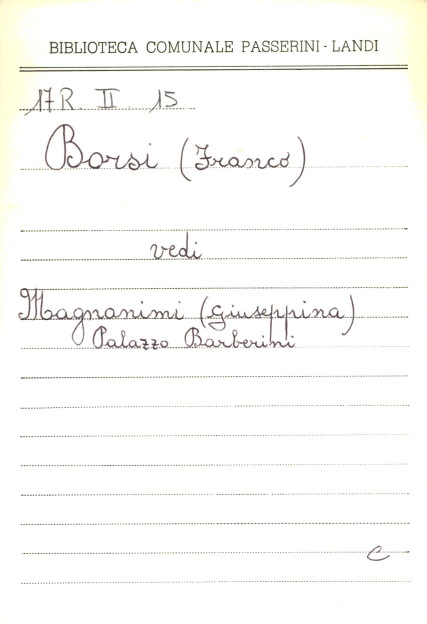 BIBLIOTECA COMUNALE PASSERINI - LANDI
17 R. II. 15
Borsi (Franco)
vedi
Magnanimi (Giuseppina)
Palazzo Barberini
C